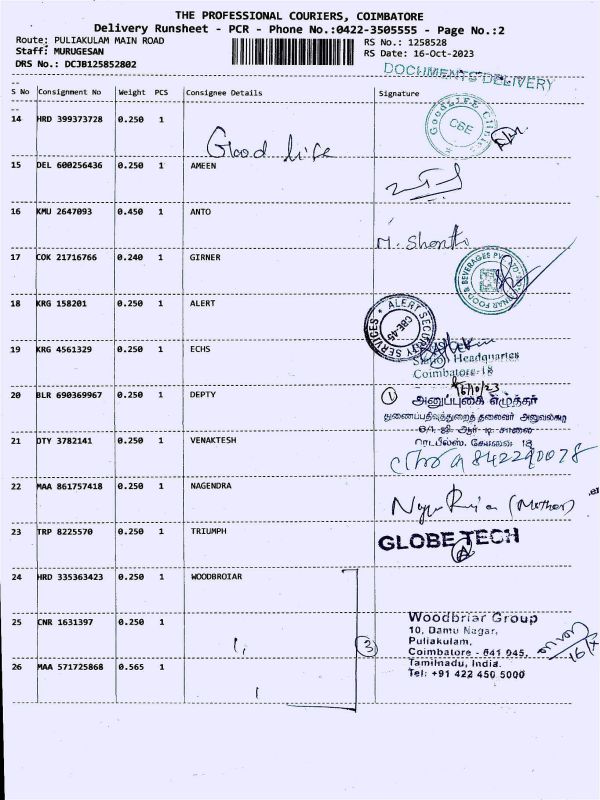 THE PROFESSIONAL COURIERS, COIMBATORE
Delivery Runsheet - PCR - Phone No.:0422-3505555 - Page No.:2
Route: PULIAKULAM MAIN ROAD RS No.: 1258528
Staff: MURUGESAN RS Date: 16-Oct-2023
DRS No.: DCJB125852802
DOCUMENTS DELIVERY
S No Consignment No Weight PCS Consignee Details Signature
14 HRD 399373728 0.250 1 Good life
GOODLIFE CBE
15 DEL 600256436 0.250 1 AMEEN
16 KMU 2647093 0.450 1 ANTO
M. Shenth
17 COK 21716766 0.240 1 GIRNER
FOOD & BEVERAGES PVT
18 KRG 158201 0.250 1 ALERT
ALERT SECURITY SERVICES CBE-45
19 KRG 4561329 0.250 1 ECHS
Headquarter
Coimbatore-18
16/10/23
20 BLR 690369967 0.250 1 DEPTY
1 அனுப்புகை எழுத்தர்
துணைப்பதிவுத்துறைத் தலைவர் அலுவலகம்
21 DTY 3782141 0.250 1 VENAKTESH
கோவை 18
9842290078
22 MAA 861757418 0.250 1 NAGENDRA
(Mother)
23 TRP 8225570 0.250 1 TRIUMPH
GLOBE TECH
24 HRD 335363423 0.250 1 WOODBROIAR
25 CNR 1631397 0.250 1
3
Woodbriar Group
10, Damu Nagar,
Puliakulam,
Coimbatore - 641 045,
Tamilnadu, India.
Tel: +91 422 450 5000
26 MAA 571725868 0.565 1